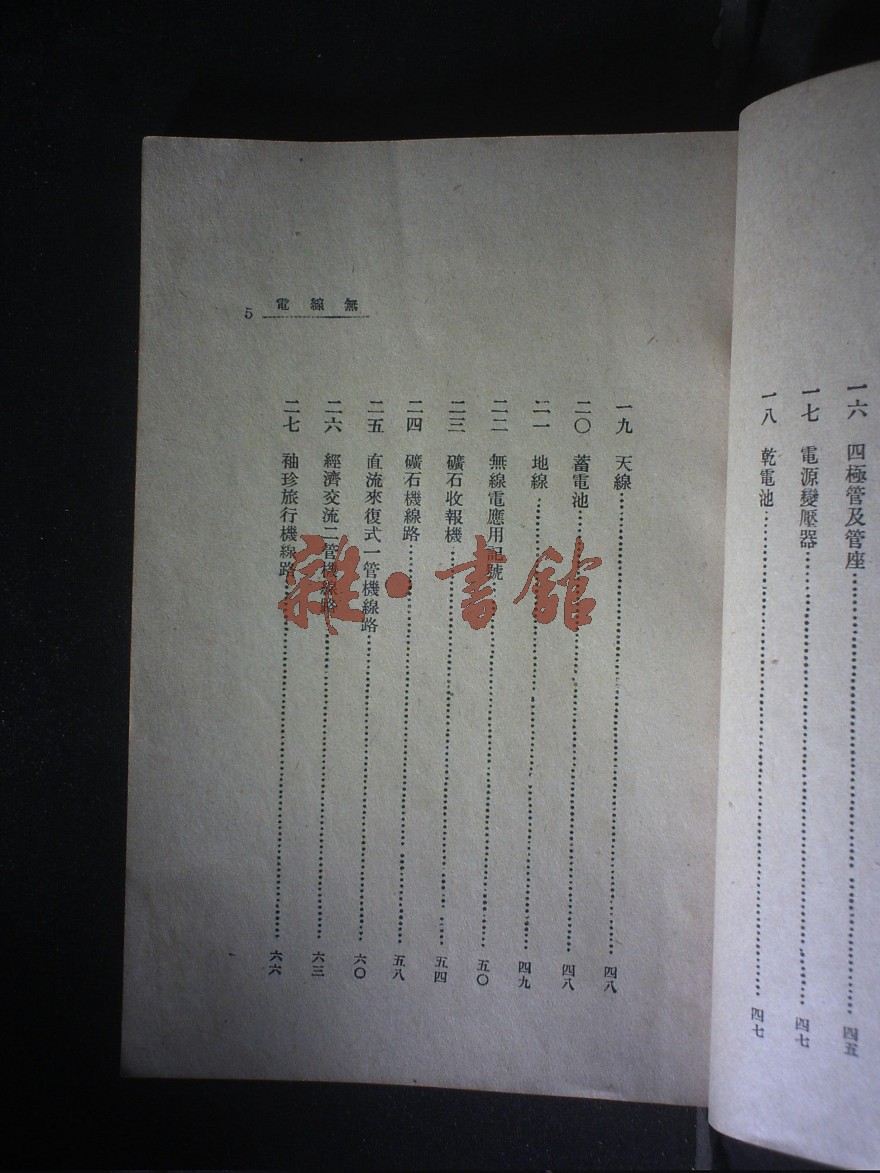 一六 四極管及管座 四五
一七 電源變壓器 四七
一八 乾電池 四七
一九 天線 四八
二〇 蓄電池 四八
二一 地線 四九
二二 無線電應用記號 五〇
二三 礦石收報機 五四
二四 礦石機線路 五八
二五 直流來復式一管機線路 六〇
二六 經濟交流二管機線路 六三
二七 袖珍旅行機線路 六六
無線電
5
雜·書館